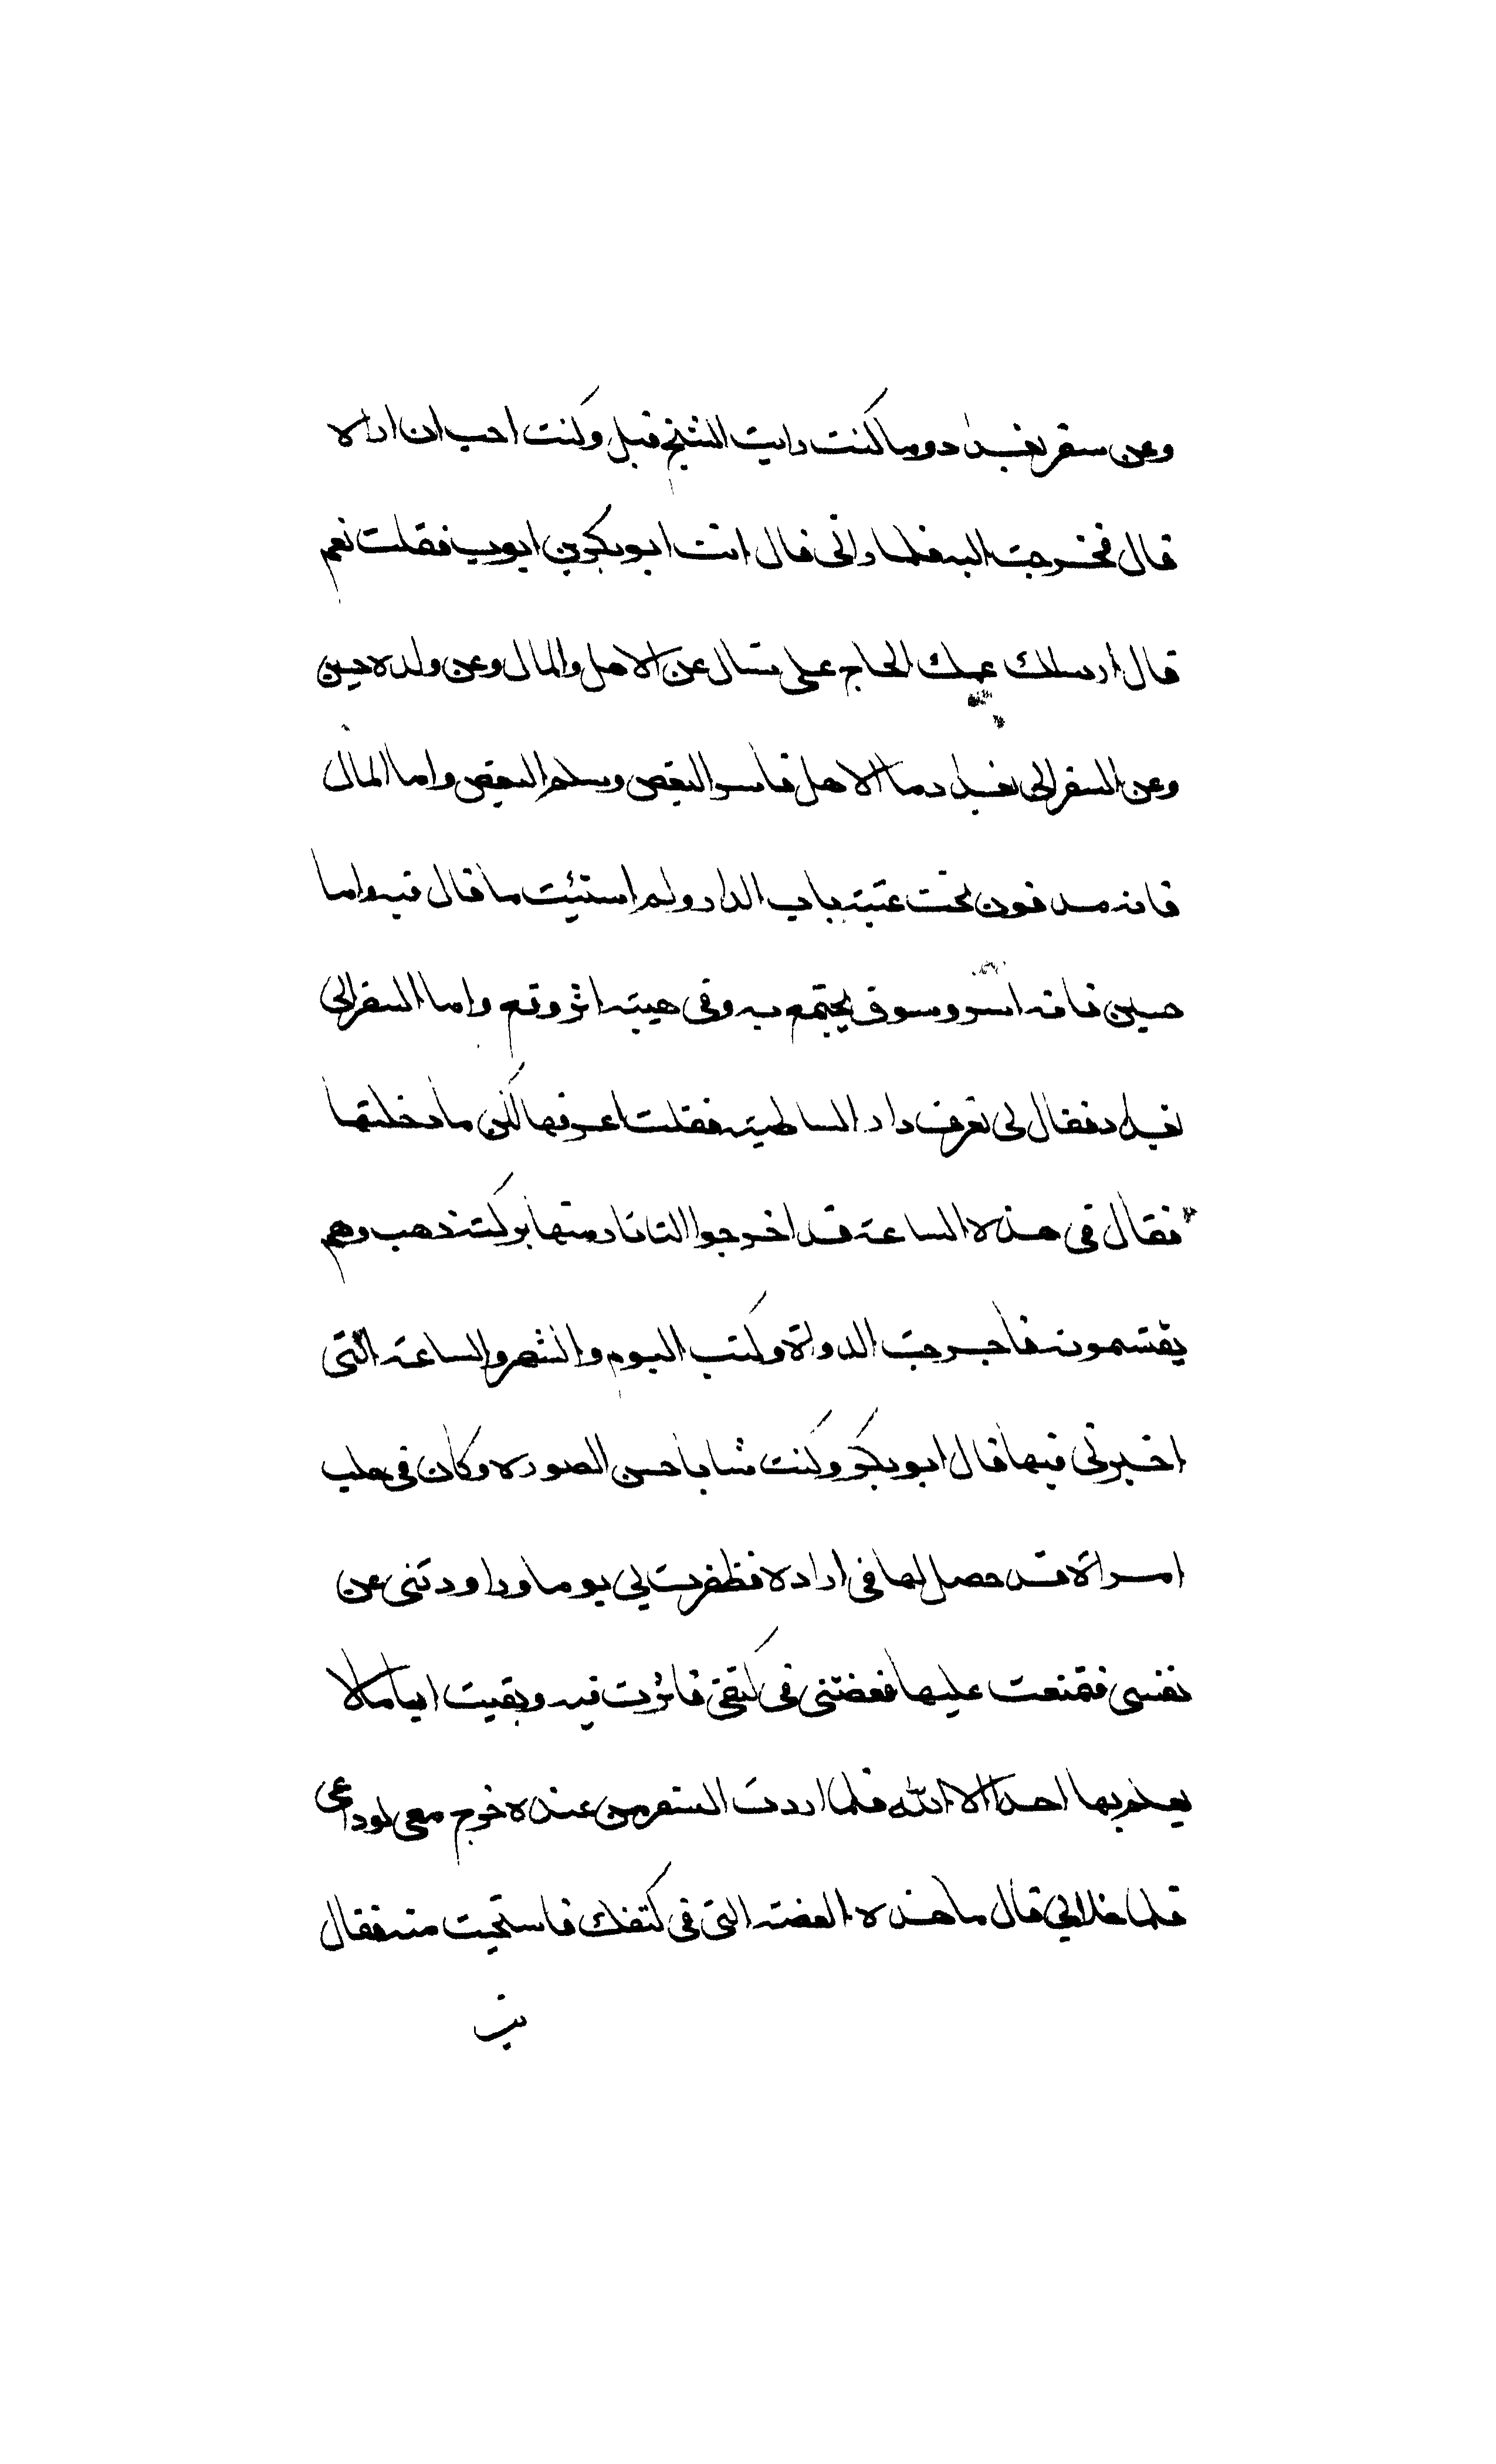 وعن سفر بغداد وما كنت رايت الشيخ قبل وكنت احب ان اراه
قال فخرجت اليه فلما راني قال انت ابو بكر بن ايوب فقلت نعم
قال ارسلك عمك الحاج علي تسال عن الاهل والمال وعن ولده حسين
وعن السفر الى بغداد ما الاهل فاسر البعض وسلم البعض واما المال
فانه مدفون تحت عتبة باب الدار ولم استثبت ما قال فيه واما
حسين فانه اسر وسوف يجتمع به وفي هيبته اثر وقع واما السفر الى
بغداد فقال لي تعرف دار الساطية فقلت اعرفها لكن ما دخلتها
فقال في هذه الساعة قد اخرجوا التاتار منها بركة ذهب وهم
يقتسمونه فاخرجت الدواة وكتب اليوم والشهر والساعة التي
اخبرني فيها قال ابو بكر وكنت شابا حسن الصوره وكان في حلب
امراة قد حصل لها في اراده فظفرت بي يوما وراودتني عن
نفسي فتمنعت عليها فعضتني في كتفي فاثرت فيه وبقيت اياما لا
يعلم بها احد الا الله فلما اردت السفر من عنده خرج معي لوداعي
فلما خلا بي قال ما هذه العضة التي في كتفك فاستحيت منه فقال